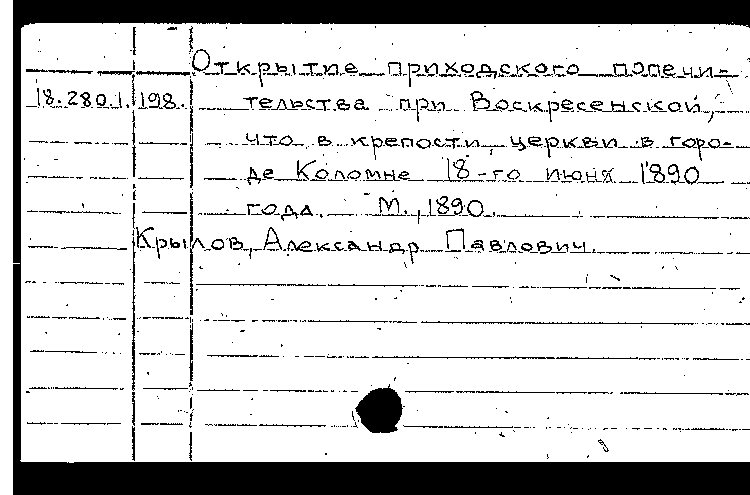 Открытие приходского попечи-
18.280.1.198. тельства при Воскресенской,
что в крепости, церкви в горо-
де Коломне 18-го июня 1890
года. М., 1890.
Крылов, Александр Павлович.